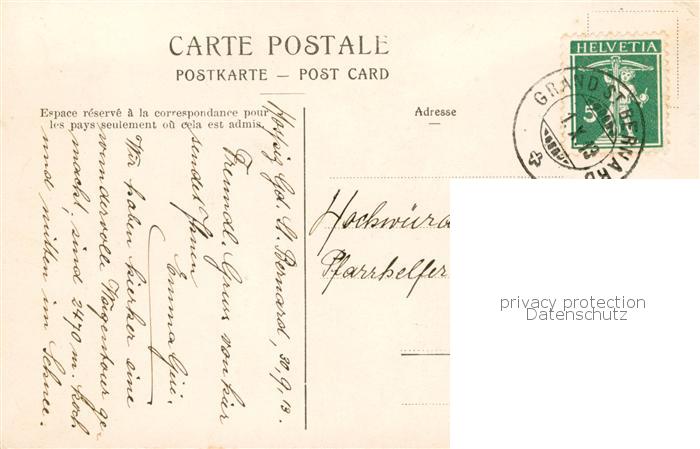 CARTE POSTALE
POSTKARTE — POST CARD
Espace réservé à la correspondance pour
les pays seulement où cela est admis.
Adresse
HELVETIA
5
GRAND ST BERNARD
Hospiz Gd. St. Bernard, 30.9.13.
Freundl. Gruss von hier
sendet Ihnen
Emma
Wir haben hierher eine
wundervolle Wagentour ge-
macht, sind 2470 m. hoch
und mitten im Schnee.
Hochwürd
Pfarrhelfer
privacy protection
Datenschutz